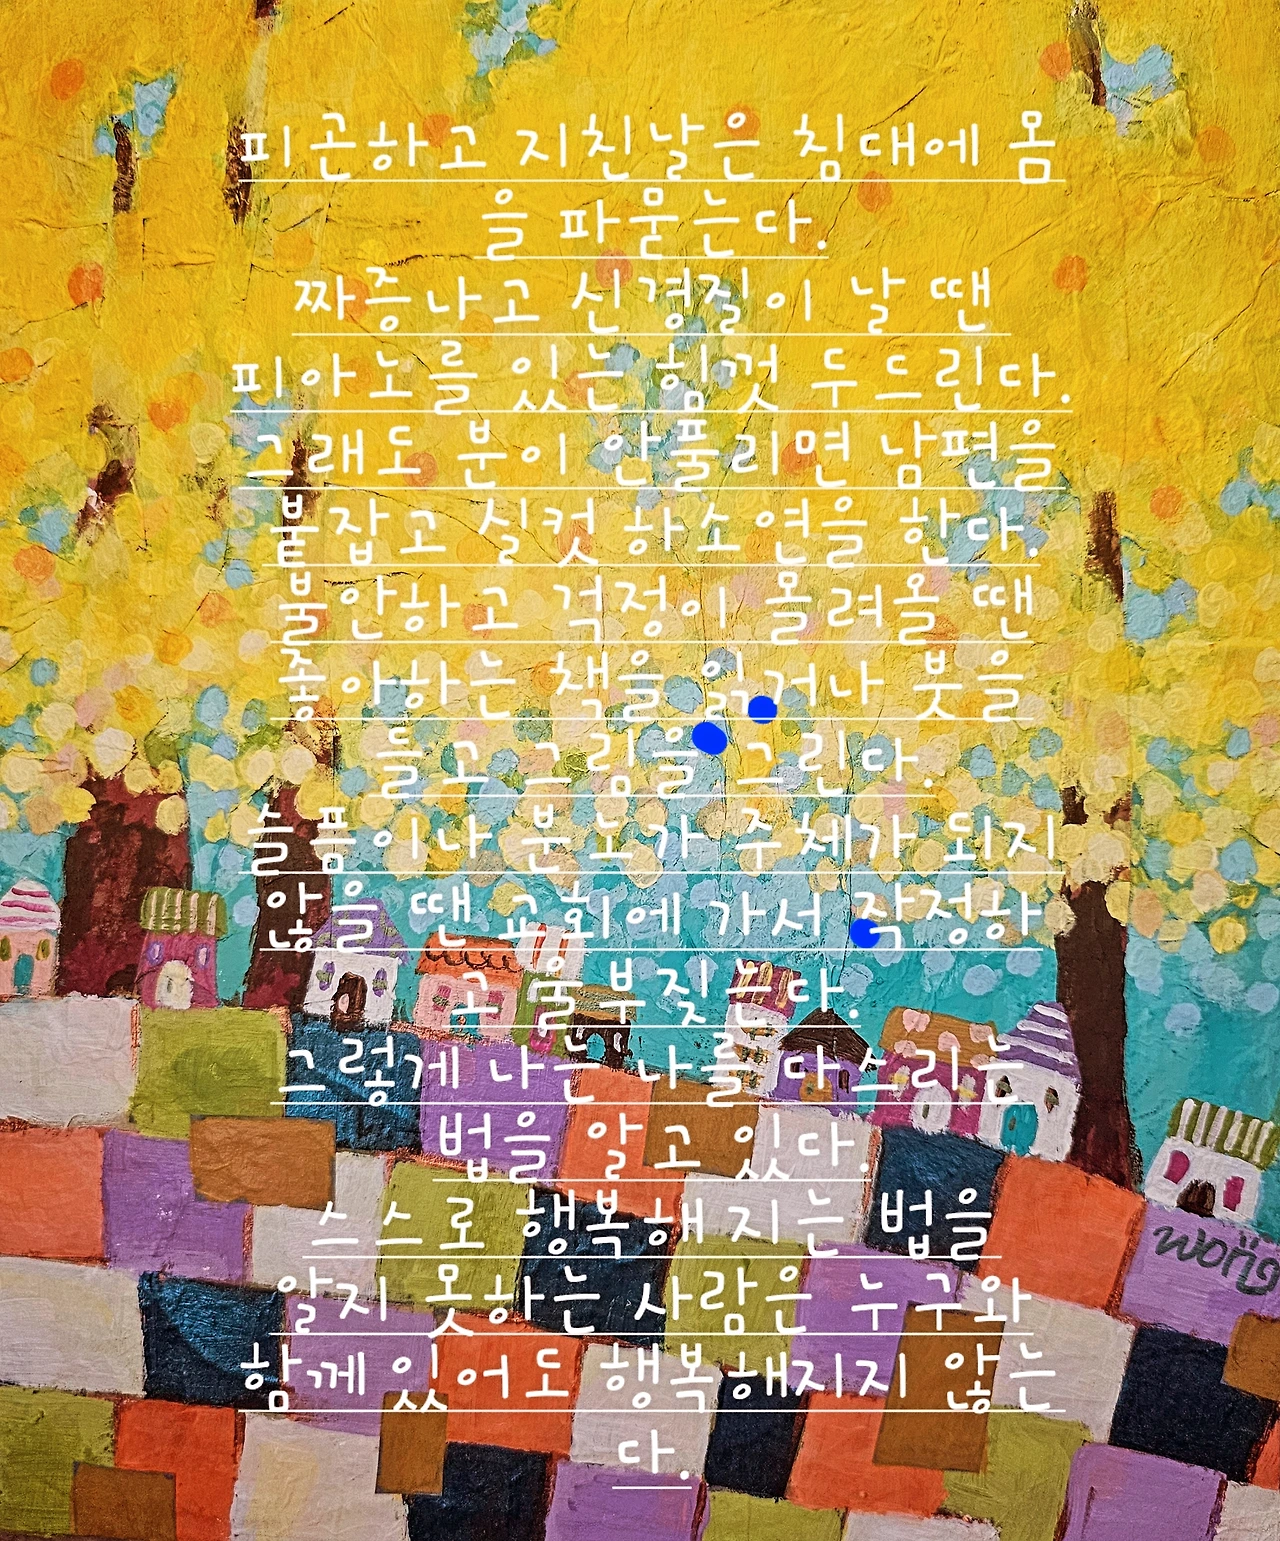 피곤하고 지친날은 침대에 몸
을 파묻는다.
짜증나고 신경질이 날 땐
피아노를 있는 힘껏 두드린다.
그래도 분이 안풀리면 남편을
붙잡고 실컷 하소연을 한다.
불안하고 걱정이 몰려올 땐
좋아하는 책을 읽거나 붓을
들고 그림을 그린다.
슬픔이나 분노가 주체가 되지
않을 땐 교회에 가서 작정하
고 울부짖는다.
그렇게 나는 나를 다스리는
법을 알고 있다.
스스로 행복해 지는 법을
알지 못하는 사람은 누구와
함께 있어도 행복해지지 않는
다.